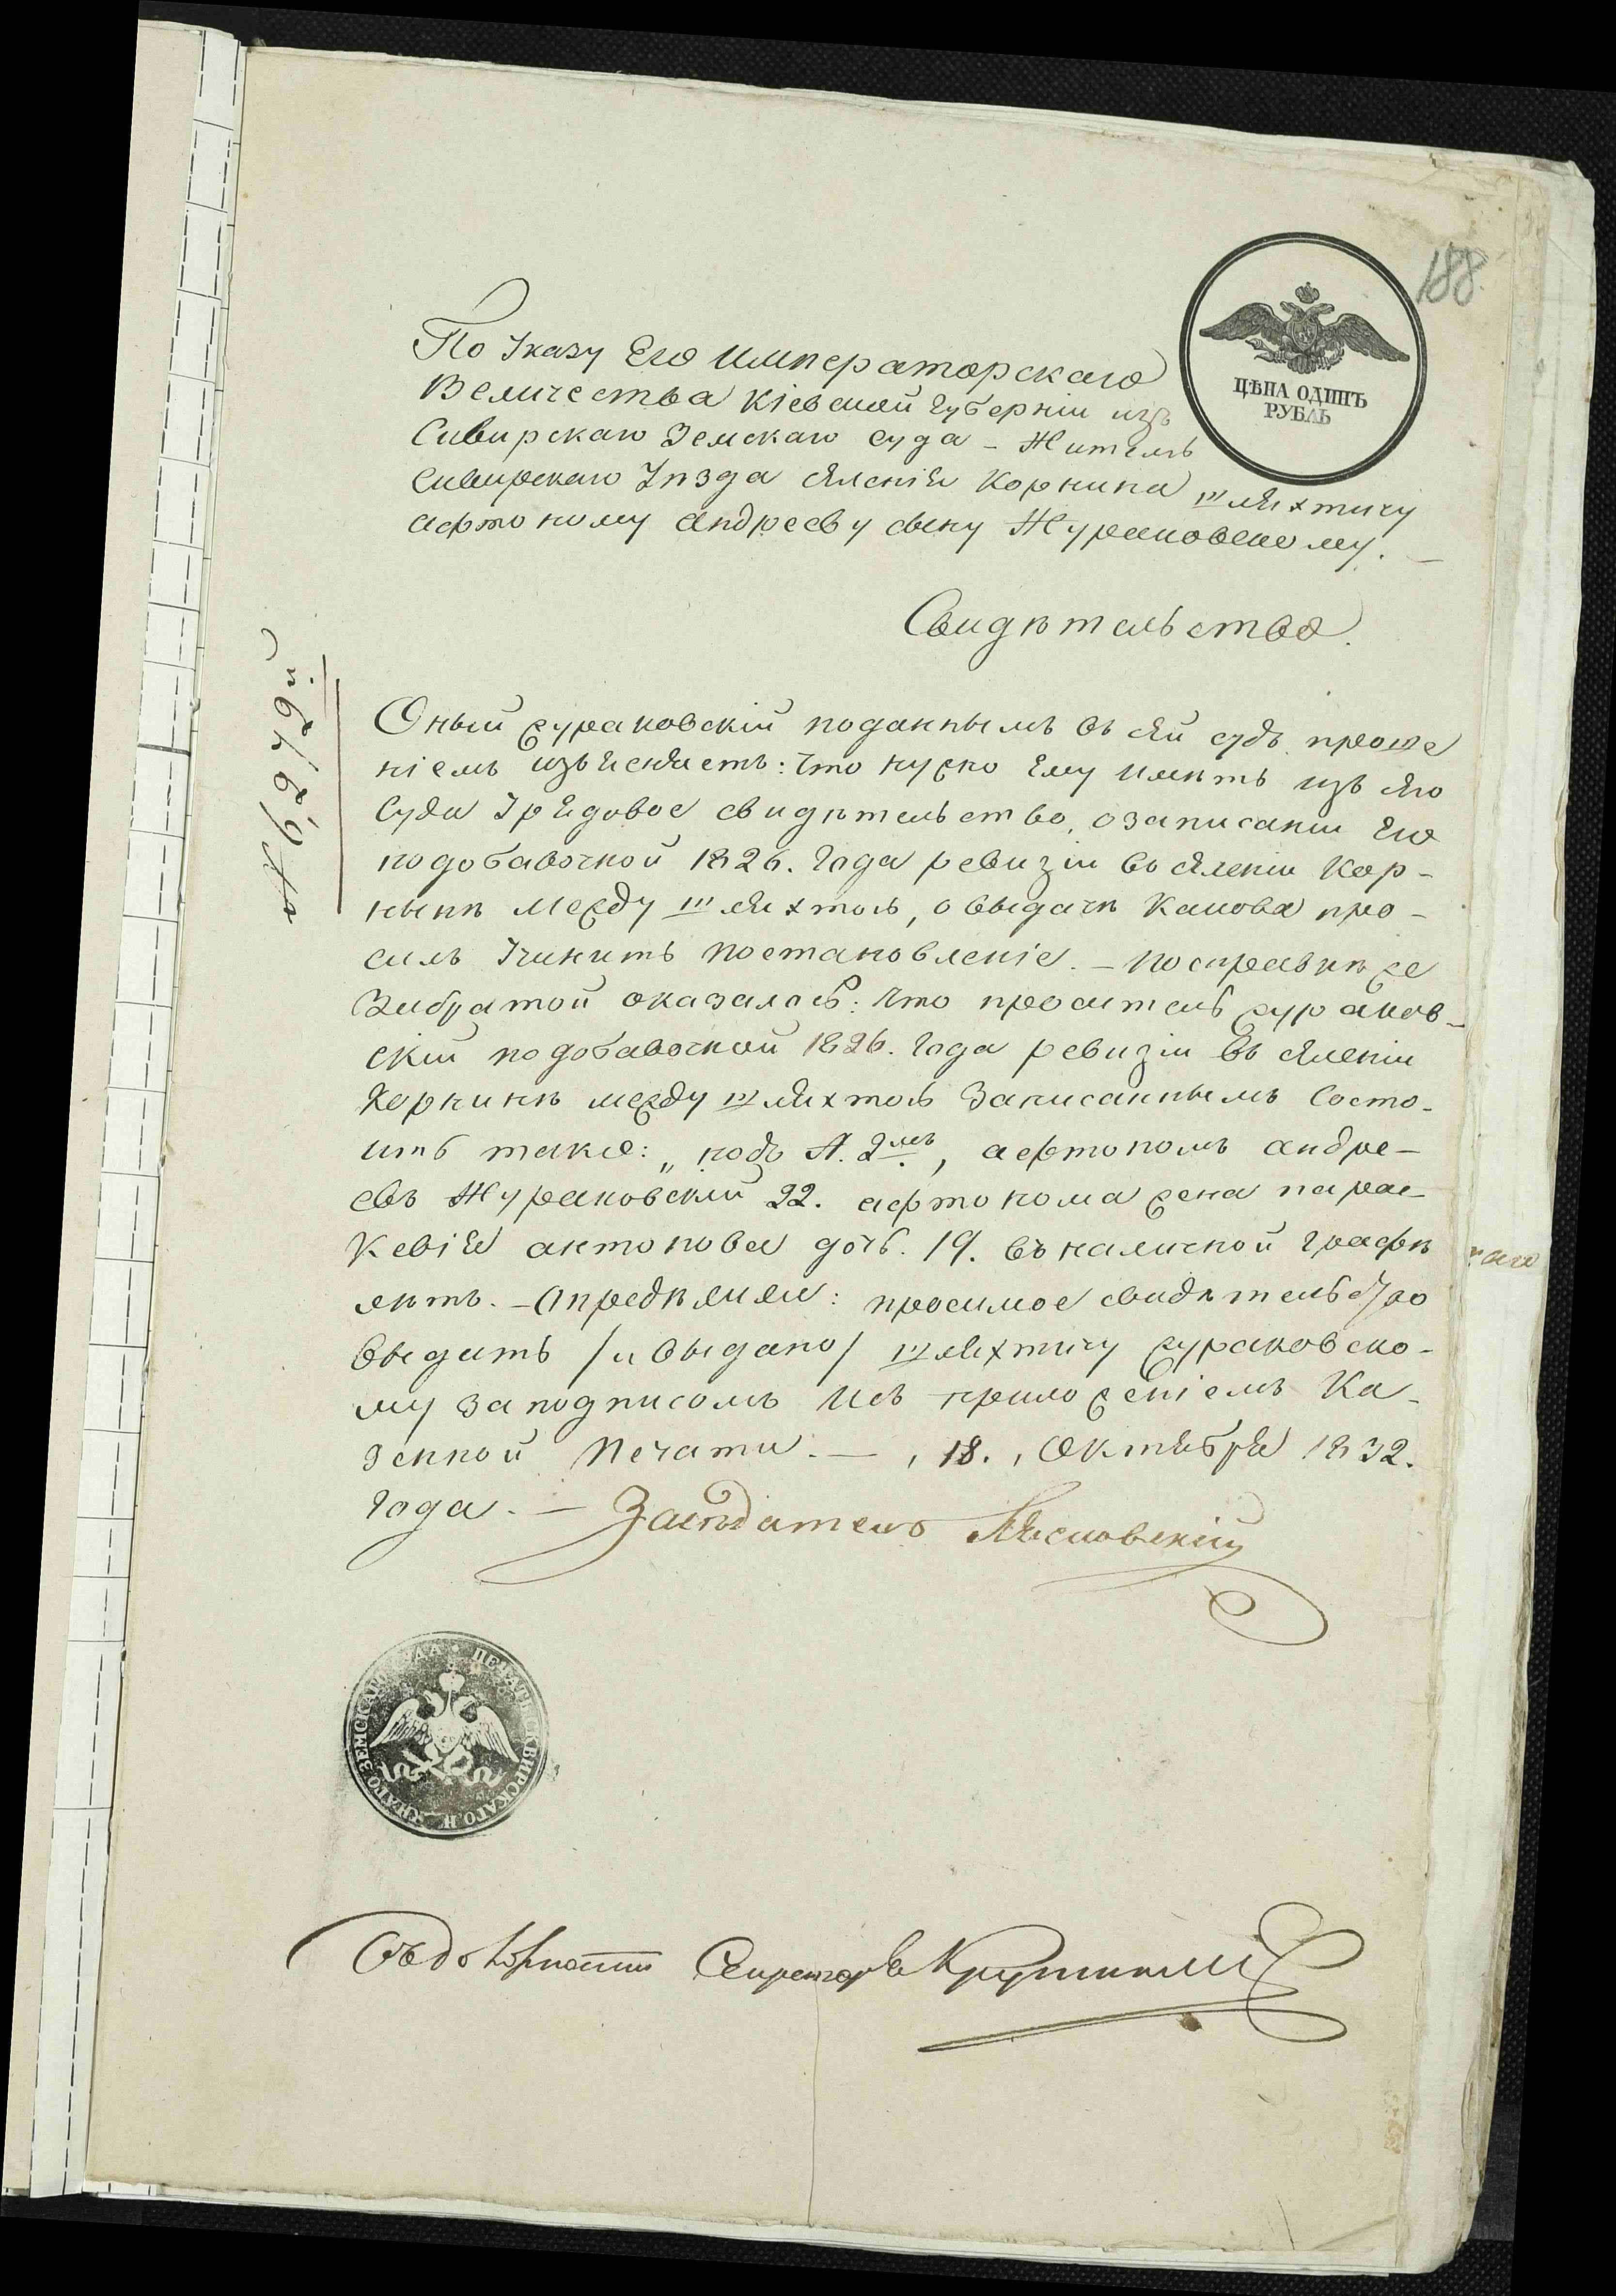 188
ЦѢНА ОДИНЪ
РУБЛЬ
По Указу Его Императорскаго
Величества Кіевской Губерніи изъ
Сквирскаго Земскаго Суда – Жителю
Сквирскаго Уѣзда селенія Корнина шляхтичу
Афтоному Андрееву сыну Жураковскому. –
Свидѣтельство.
Оный Жураковскій поданнымъ въ сей судъ проше
ніемъ изъясняетъ: что нужно Ему имѣть изъ сего
Суда Урядовое свидѣтельство, о записаніи Его
по добавочной 1826. Года ревизіи въ селеніи Кор-
нынѣ между шляхтою, о выдачѣ Какова про-
силъ Учинить постановленіе. – По справкѣ же
Забратой оказалось: что проситель Журахов-
скій по добавочной 1826. Года ревизіи въ селеніи
Корнинѣ между шляхтою Записаннымъ Состо-
итъ тако: „ подъ №. 2мъ, афтономъ андре-
евъ Жураковскій 22. афтонома жена парас-
Кевія антонова дочь. 19. въ наличной графѣ
лѣтъ. – Опредѣлили: просимое свидѣтельство
выдать /и выдано/ шляхтичу Жураковско-
му за подписомъ и съ приложеніемъ Ка-
зенной Печати. – , 18. , Октября 1832.
Года. – Засѣдатель Лясковскій
ПЕЧАТЬ СКВИРСКАГО НИЖНЯГО ЗЕМСКАГО СУДА
Въ должности Секретаря